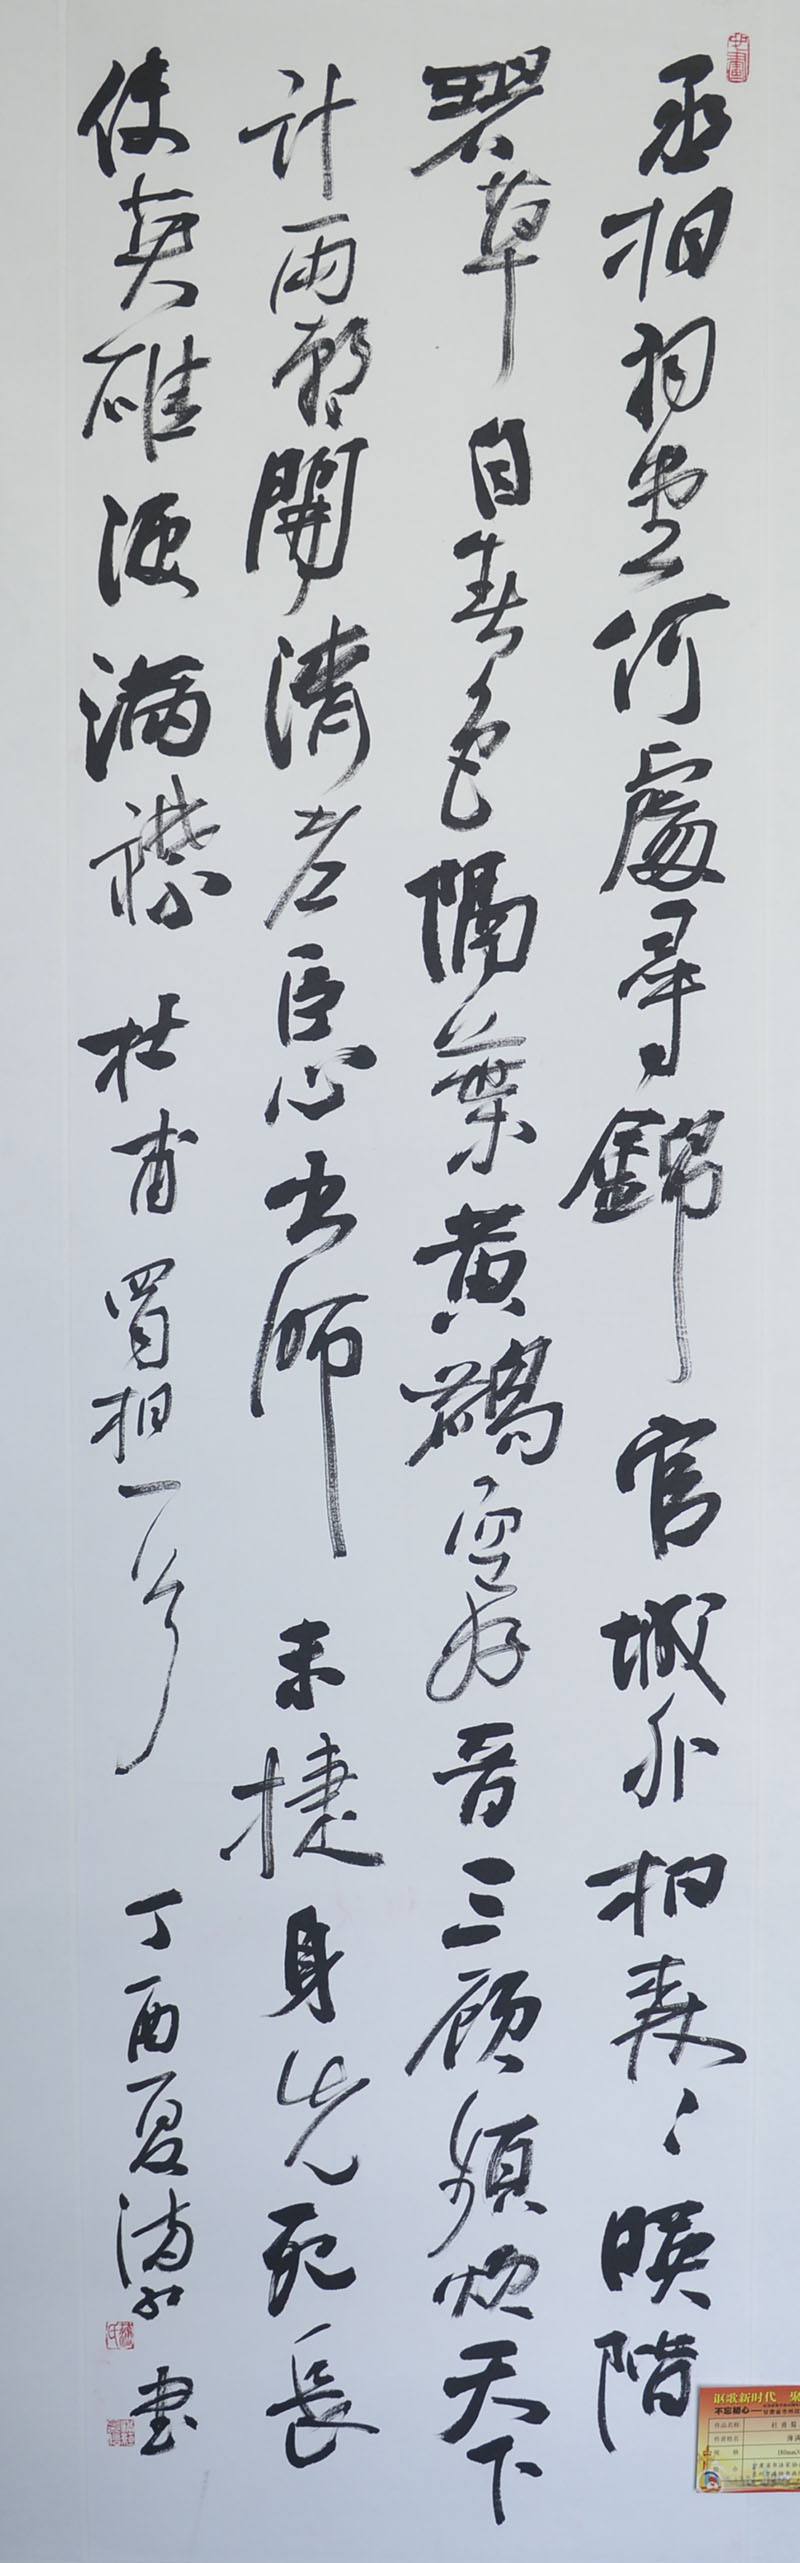 丞相祠堂何處尋錦官城外柏森々暎階
碧草自春色隔葉黃鸝空好音三顧頻煩天下
計兩朝開濟老臣心出師未捷身先死長
使英雄淚滿襟 杜甫蜀相一首 丁酉夏 書
讴歌新时代 聚
不忘初心——甘肃省市州政
作品名称 杜甫蜀
作者姓名
180mmX
甘肃省书法家协